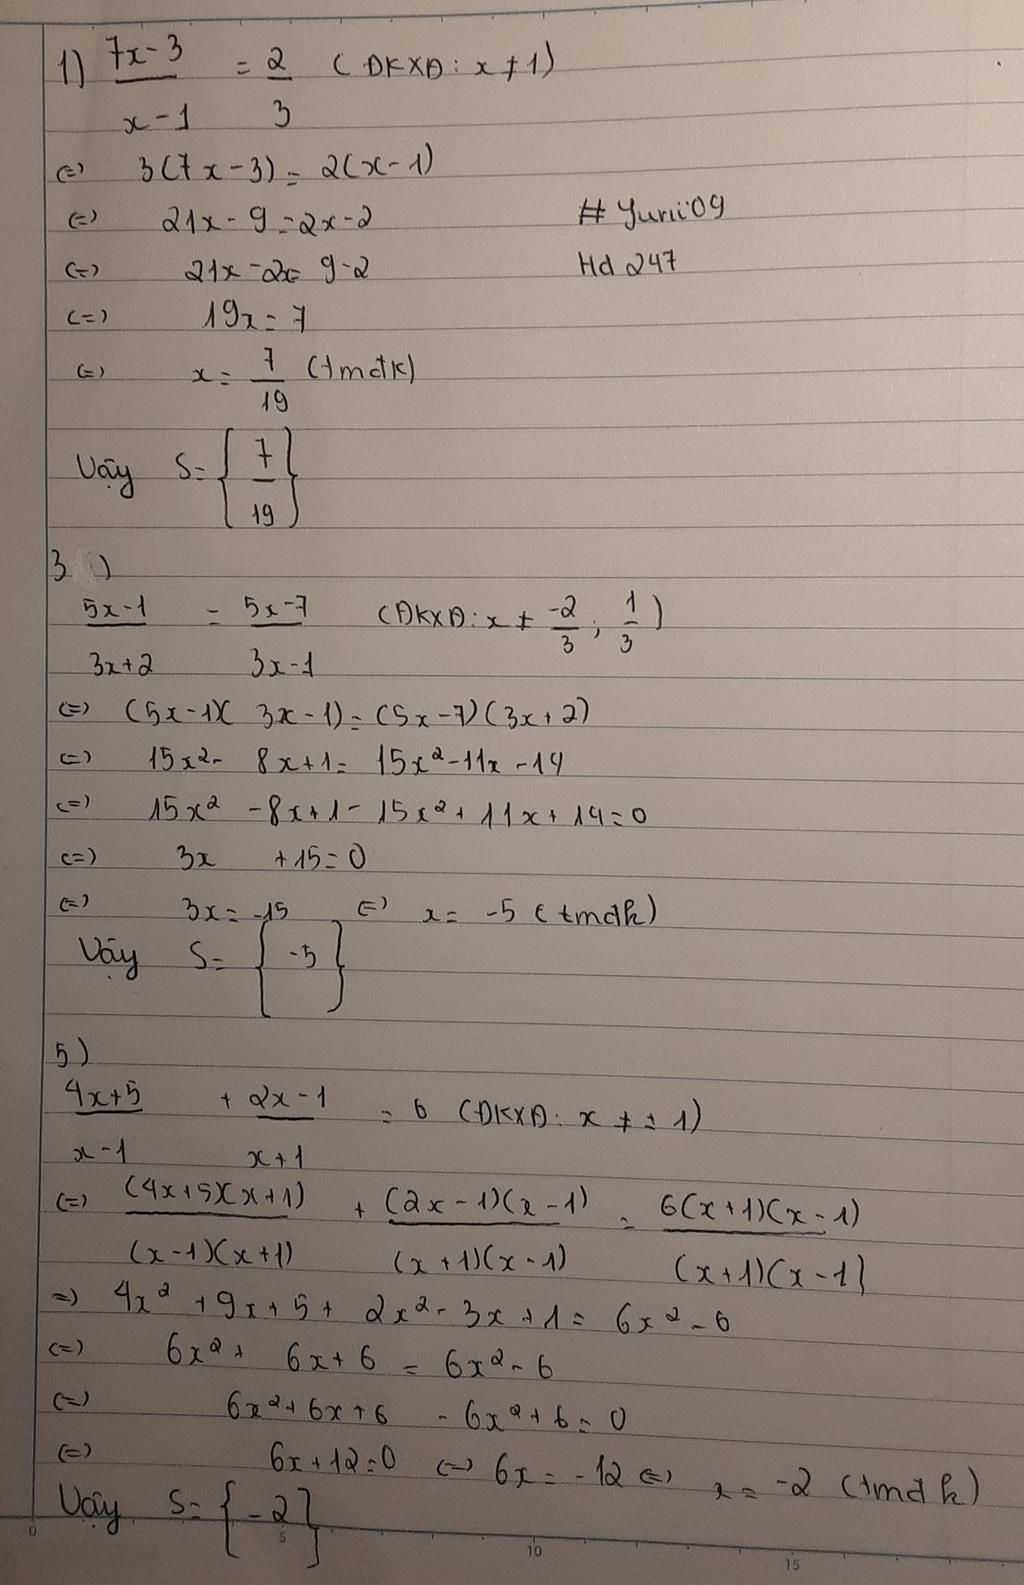 1) 7x-3 = 2 (ĐKXĐ: x ≠ 1)
x-1 3
(=) 3(7x-3) = 2(x-1)
(=) 21x - 9 = 2x - 2 # Yurii09
(=) 21x - 2x = 9-2 Hd 247
(=) 19x = 7
(=) x = 7 (tmđk)
19
Vậy S = { 7
19 }
3 )
5x-1 = 5x-7 (ĐKXĐ: x ≠ -2 ; 1 )
3x+2 3x-1 3 3
(=) (5x-1)( 3x-1) = (5x-7)(3x+2)
(=) 15x² - 8x+1 = 15x² - 11x - 14
(=) 15x² - 8x+1 - 15x² + 11x + 14 = 0
(=) 3x + 15 = 0
(=) 3x = -15 (=) x = -5 (tmđk)
Vậy S = { -5 }
5)
4x+5 + 2x-1 = 6 (ĐKXĐ: x ≠ ± 1)
x-1 x+1
(=) (4x+5)(x+1) + (2x-1)(x-1) = 6(x+1)(x-1)
(x-1)(x+1) (x+1)(x-1) (x+1)(x-1)
=) 4x² + 9x + 5 + 2x² - 3x + 1 = 6x² - 6
(=) 6x² + 6x + 6 = 6x² - 6
(=) 6x² + 6x + 6 - 6x² + 6 = 0
(=) 6x + 12 = 0 (=) 6x = -12 (=) x = -2 (tmđk)
Vậy S = { -2 }
0 5 10 15